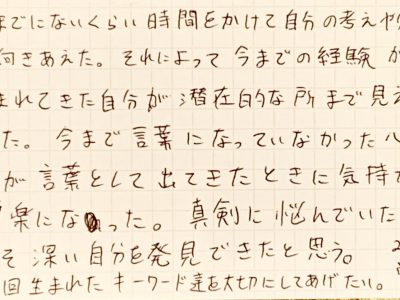 までにないくらい時間をかけて自分の考えや
向きあえた。それによって今までの経験が
まれてきた自分が潜在的な所まで見え
た。今まで言葉になっていなかった心
が言葉として出てきたときに気持ち
楽になった。真剣に悩んでいた
そ深い自分を発見できたと思う。
回生まれたキーワード達を大切にしてあげたい。